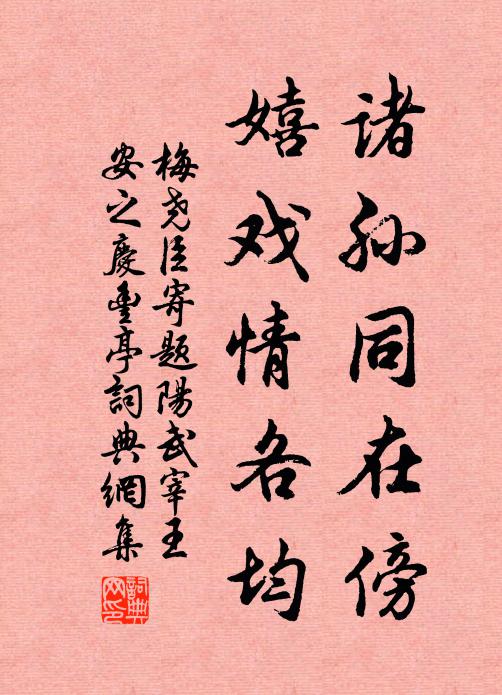 诸孙同在傍
嬉戏情各均
梅尧臣寄题陽武宰王
安之慶豊亭詞典網集
詞典网印